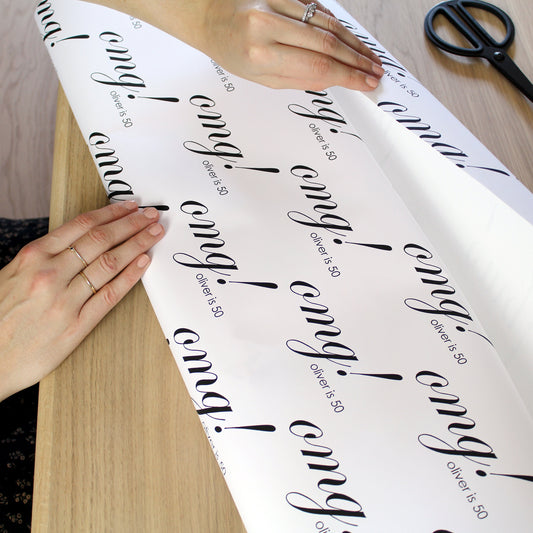 omg!
omg!
oliver is 50
omg!
oliver is 50
omg!
oliver is 50
omg!
oliver is 50
omg!
omg!
oliver is 50
omg!
oliver is 50
omg!
oliver is 50
omg!
oliver is 50
omg!
omg!
oliver is 50
omg!
oliver is 50